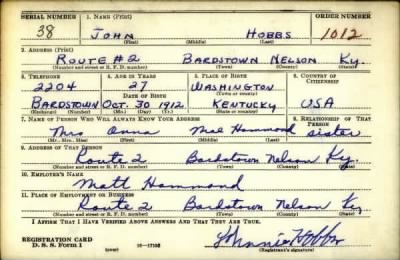 SERIAL NUMBER 1. NAME (Print) ORDER NUMBER
38 JOHN HOBBS 1012
(First) (Middle) (Last)
2. ADDRESS (Print)
ROUTE #2 BARDSTOWN NELSON KY.
(Number and street or R. F. D. number) (Town) (County) (State)
3. TELEPHONE 4. AGE IN YEARS 5. PLACE OF BIRTH 6. COUNTRY OF CITIZENSHIP
2204 27 WASHINGTON
DATE OF BIRTH (Town or county)
BARDSTOWN OCT. 30 1912 KENTUCKY USA
(Exchange) (Number) (Mo.) (Day) (Yr.) (State or country)
7. NAME OF PERSON WHO WILL ALWAYS KNOW YOUR ADDRESS 8. RELATIONSHIP OF THAT PERSON
Mrs Anna Mae Hammond sister
(Mr., Mrs., Miss) (First) (Middle) (Last)
9. ADDRESS OF THAT PERSON
Route 2 Bardstown Nelson Ky.
(Number and street or R. F. D. number) (Town) (County) (State)
10. EMPLOYER'S NAME
Matt Hammond
11. PLACE OF EMPLOYMENT OR BUSINESS
Route 2 Bardstown Nelson Ky
(Number and street or R. F. D. number) (Town) (County) (State)
I AFFIRM THAT I HAVE VERIFIED ABOVE ANSWERS AND THAT THEY ARE TRUE.
REGISTRATION CARD Johnnie Hobbs
D. S. S. Form 1 (over) 16—17105 (Registrant's signature)